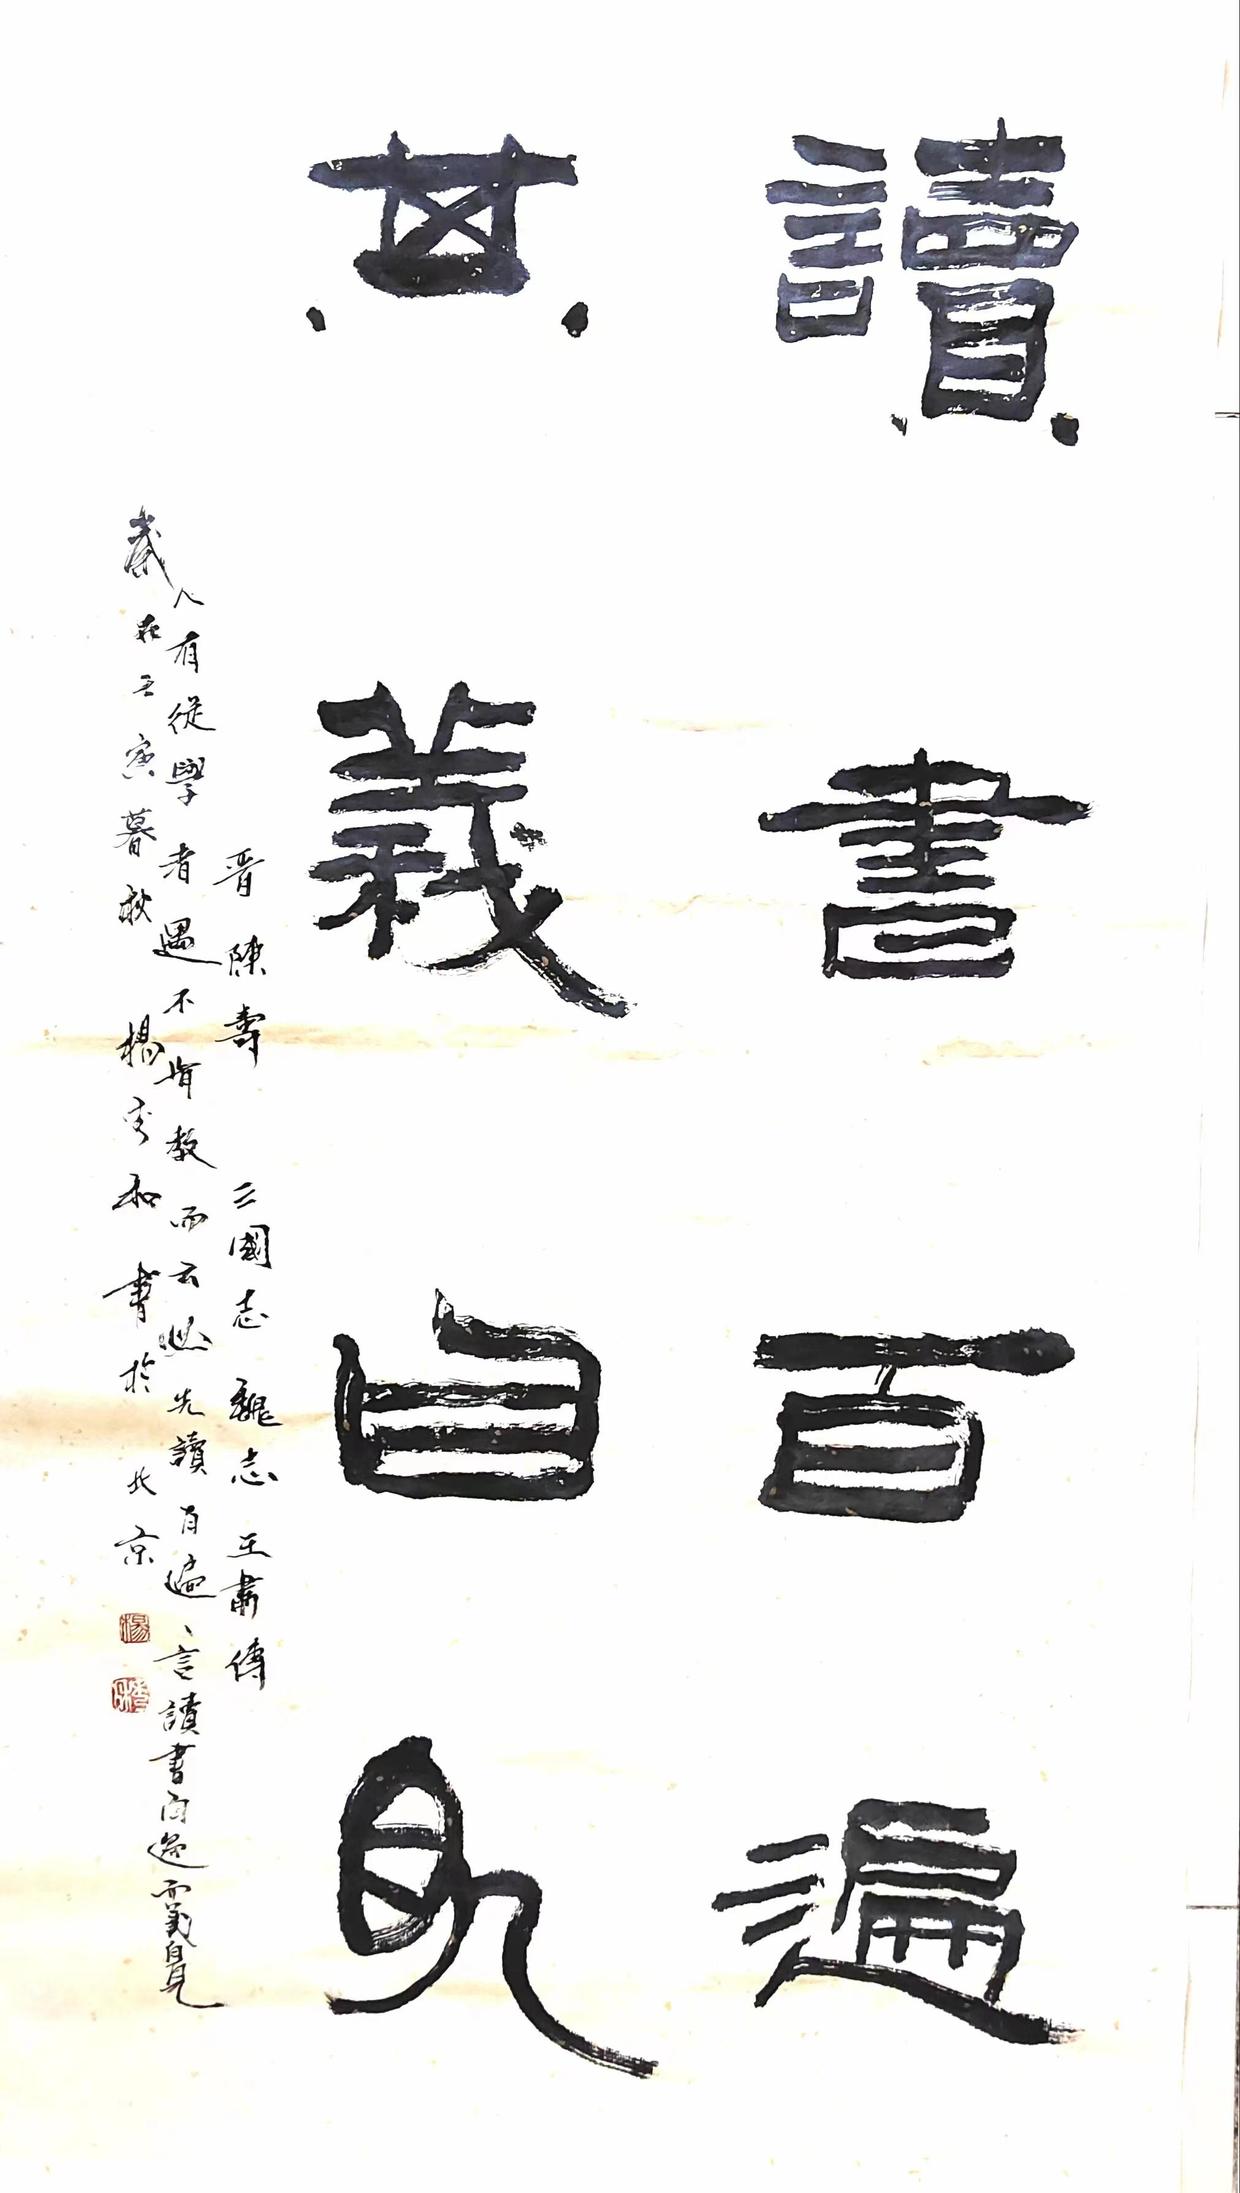 讀書百遍
其義自見
晋陳壽三國志魏志王肅傳
人有從學者遇不肯教而云必先讀百遍言讀書百遍而義自見
歲在壬寅暮秋楊秀和書於北京
楊